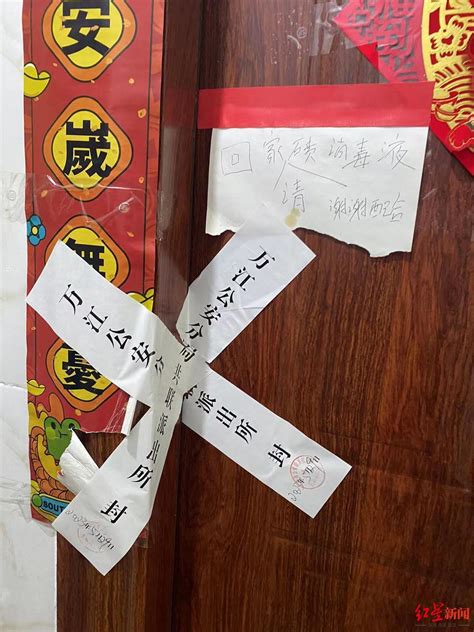 安
歲
無
憂
回家喷消毒液
请 谢谢配合
万江公安分局共联派出所封
万江公安分
派出所 封
红星新闻